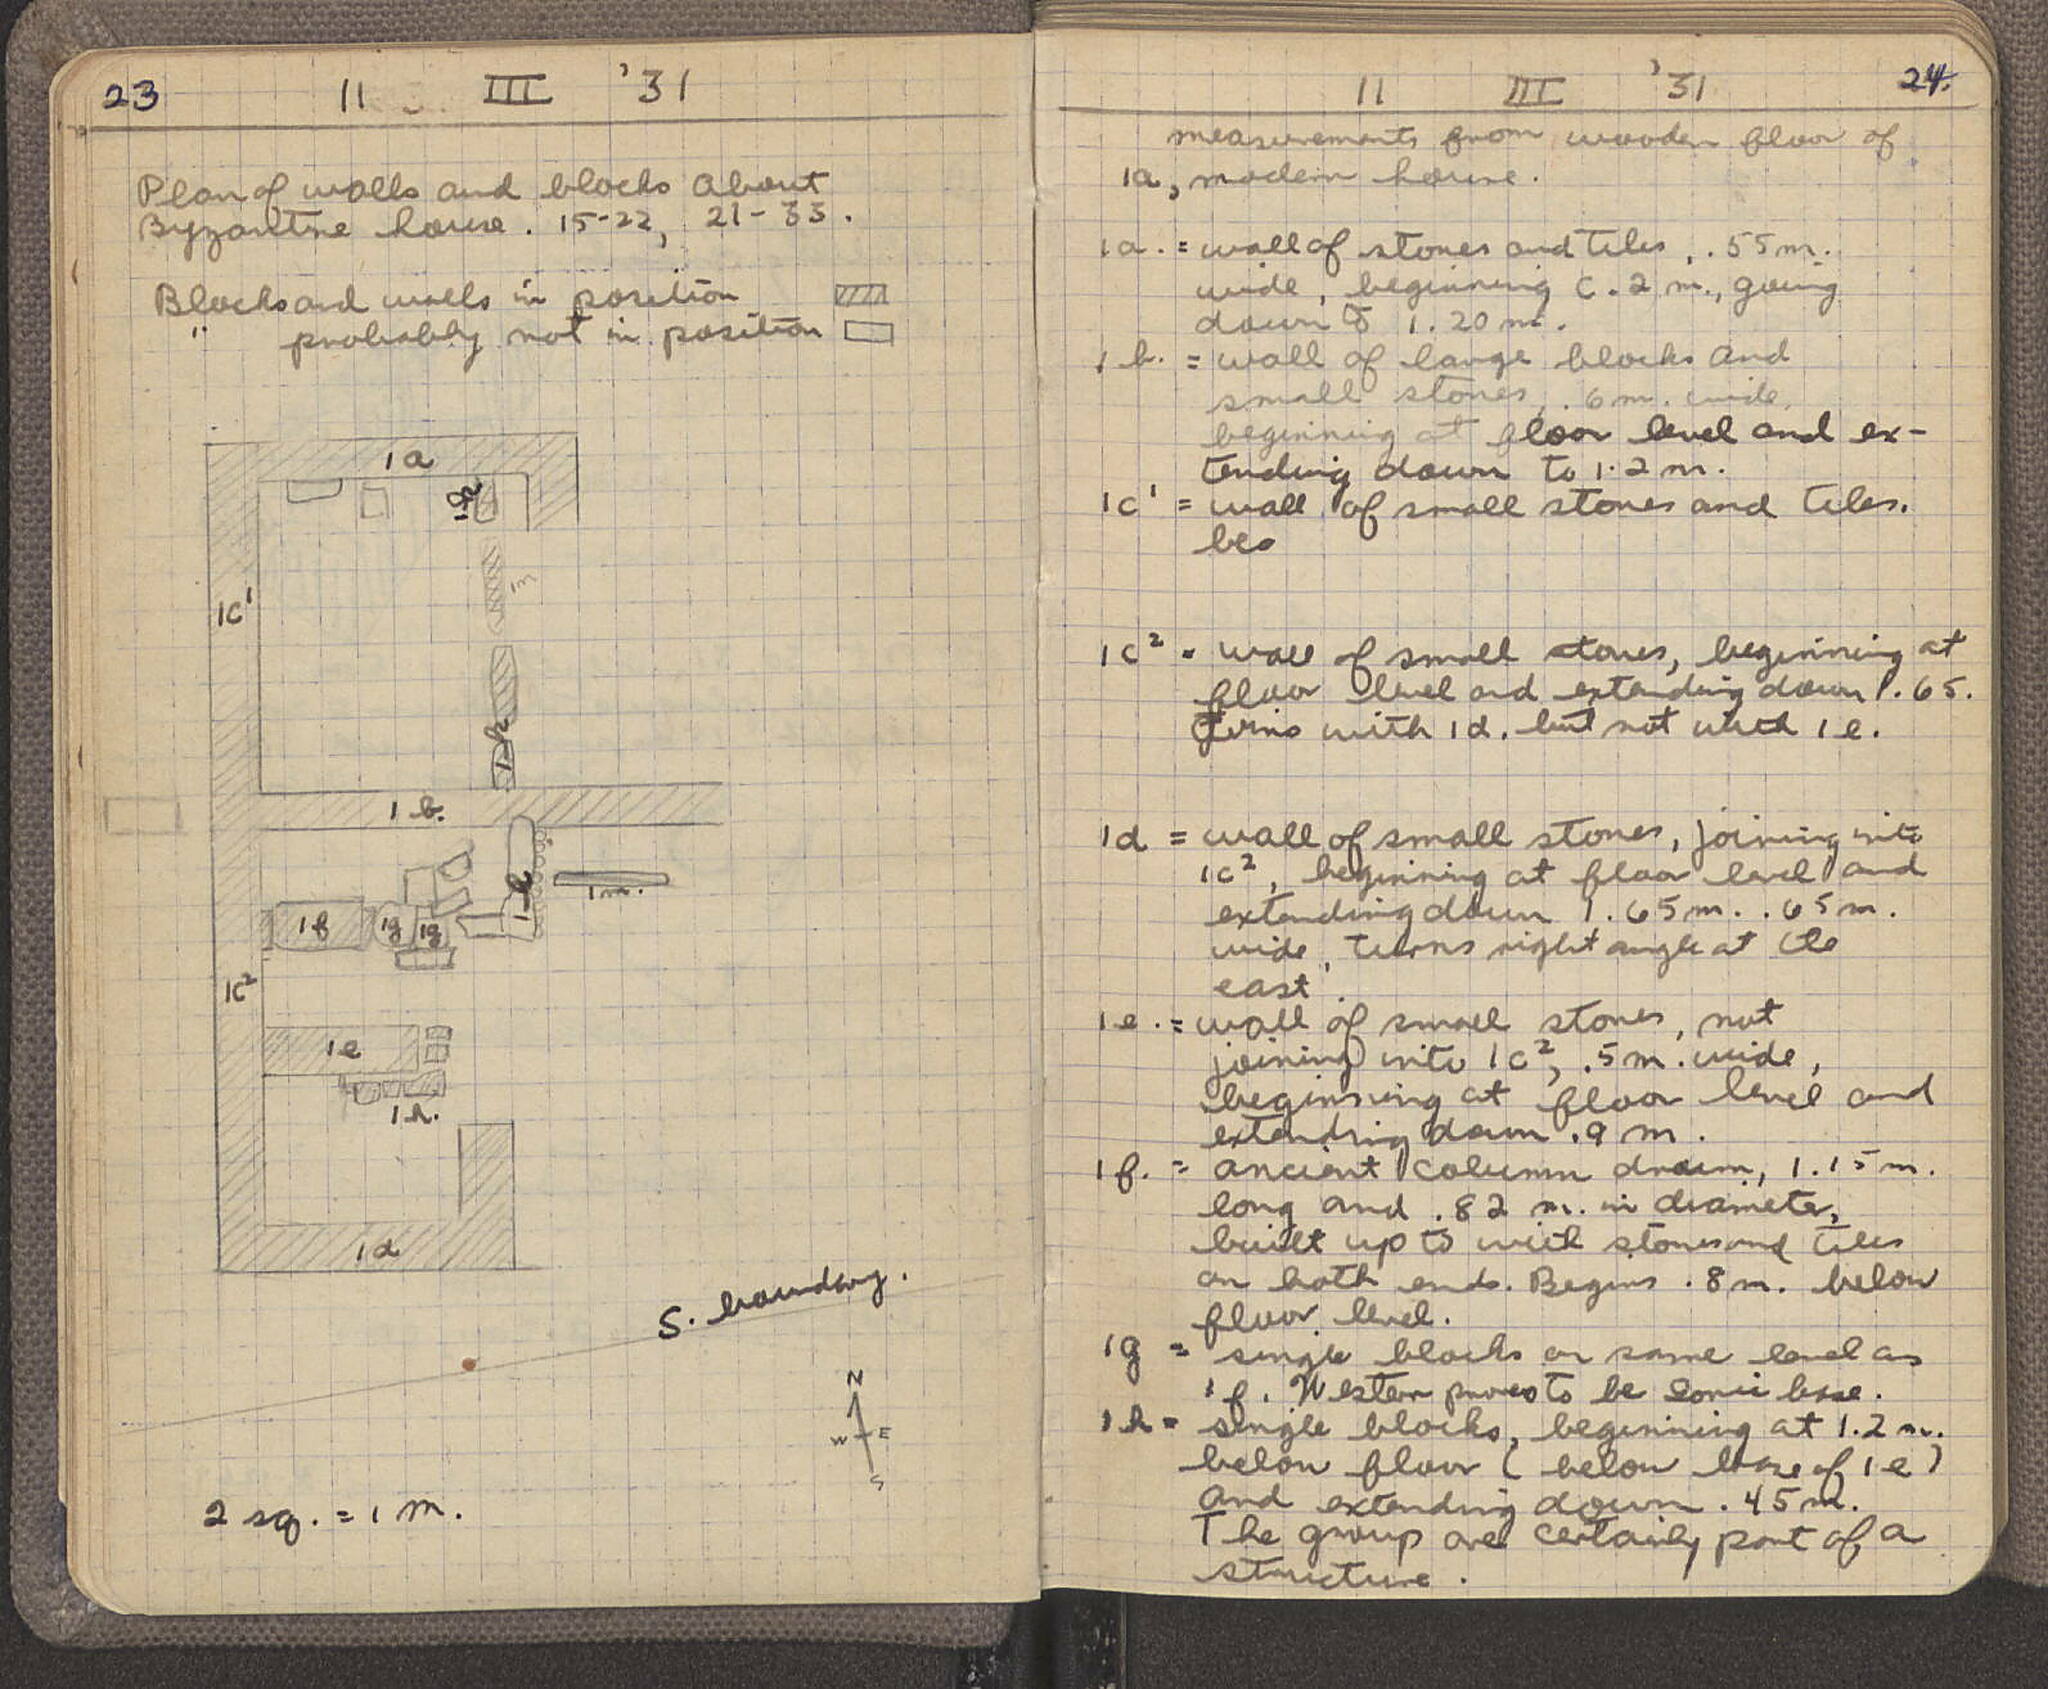 23 11 III '31
Plan of walls and blocks about
Byzantine house. 15-22, 21-33.
Blocks and walls in position
" probably not in position
1a
1c'
1m
1k
1b.
1m.
1f 1g 1g
1c²
1e
1h.
1d
S. boundary.
N
W E
S
2 sq. = 1 m.
11 III '31 24.
measurements from wooden floor of
1a, modern house.
1a. = wall of stones and tiles, .55 m.
wide, beginning c. 2 m., going
down to 1.20 m.
1b. = wall of large blocks and
small stones, .6 m. wide,
beginning at floor level and ex-
tending down to 1.2 m.
1c' = wall of small stones and tiles.
beo
1c² = wall of small stones, beginning at
floor level and extending down 1.65.
Joins with 1d. but not with 1e.
1d = wall of small stones, joining into
1c², beginning at floor level and
extending down 1.65 m. .65 m.
wide, turns right angle at the
east.
1e. = wall of small stones, not
joining into 1c², .5 m. wide,
beginning at floor level and
extending down .9 m.
1f. = ancient column drum, 1.15 m.
long and .82 m. in diameter,
built up to with stones and tiles
on both ends. Begins .8 m. below
floor level.
1g = single blocks on same level as
1f. Western proves to be Ionic base.
1h = single blocks, beginning at 1.2 m.
below floor (below base of 1e)
and extending down .45 m.
The group are certainly part of a
structure.